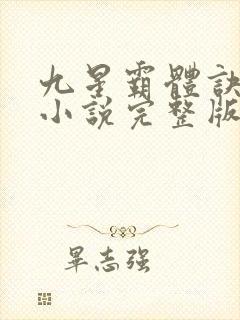 九星霸體訣
小說完整版
畢志強